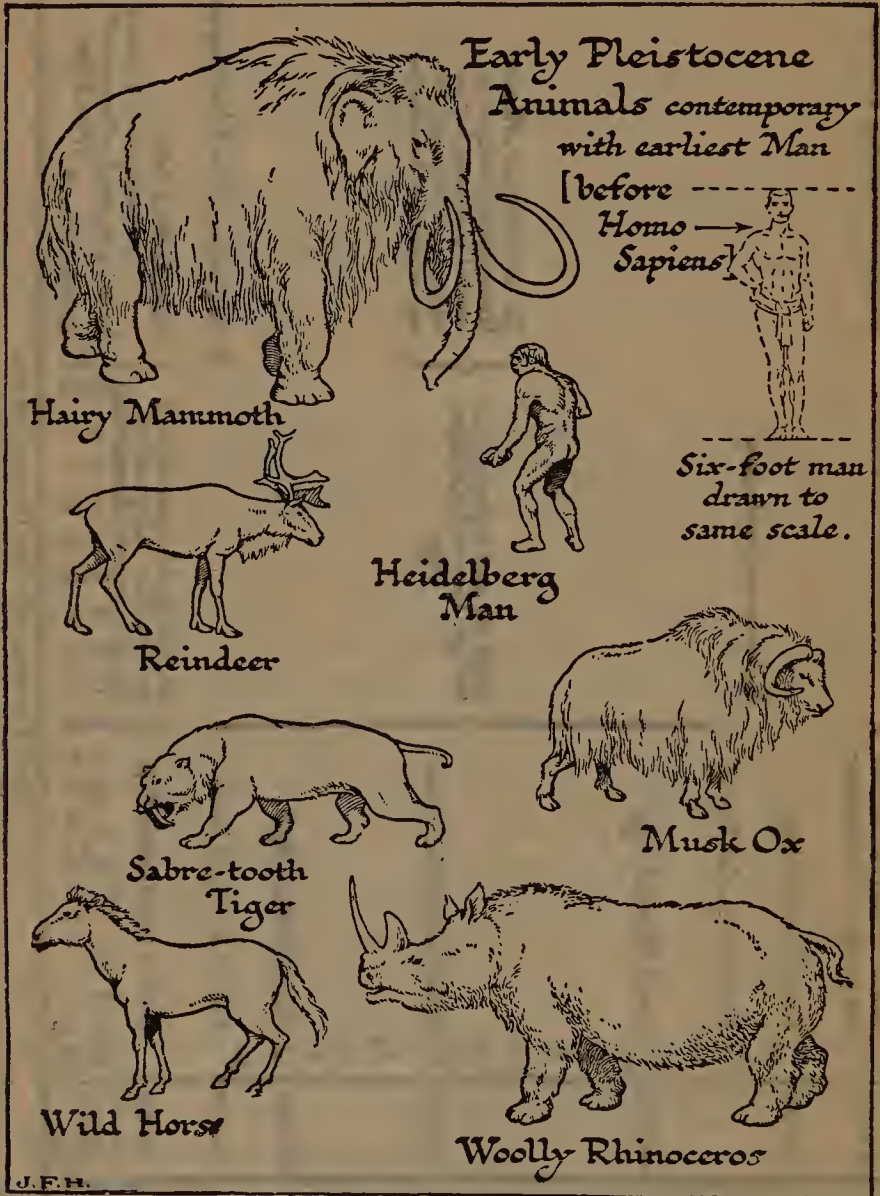 Early Pleistocene
Animals contemporary
with earliest Man
[before
Homo
Sapiens]
Six-foot man
drawn to
same scale.
Hairy Mammoth
Heidelberg
Man
Reindeer
Musk Ox
Sabre-tooth
Tiger
Wild Horse
Woolly Rhinoceros
J.F.H.